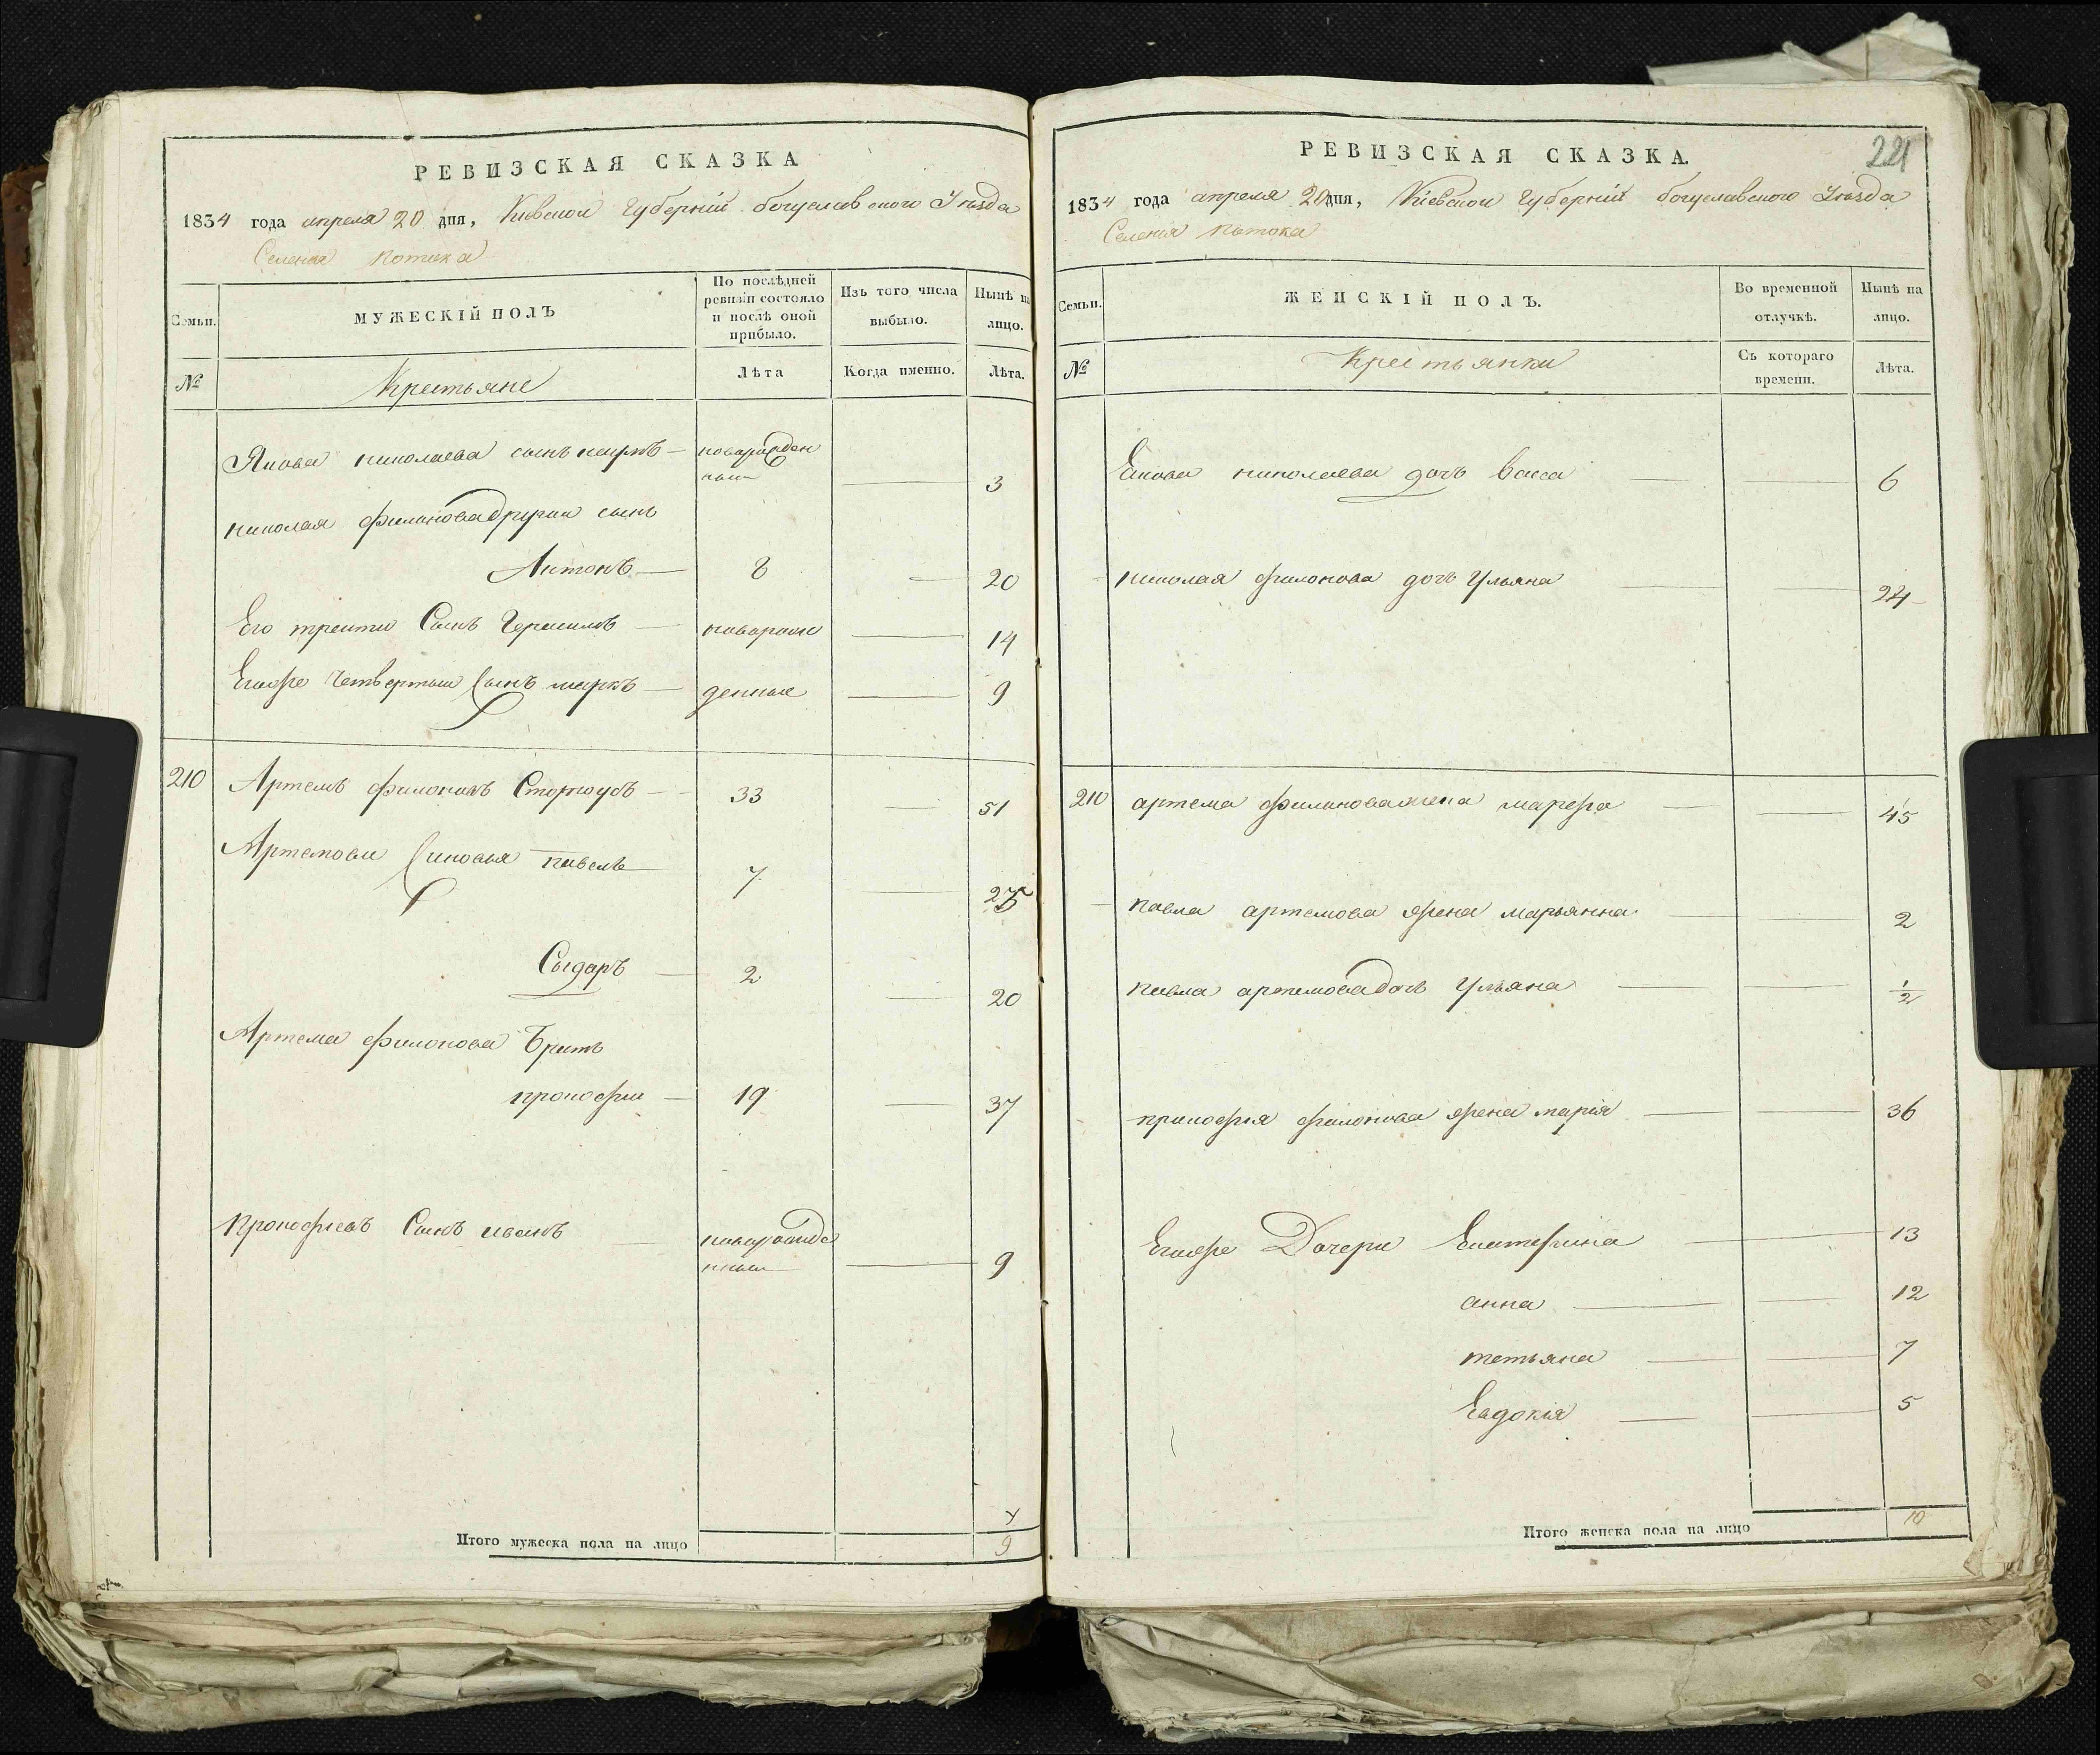 РЕВИЗСКАЯ СКАЗКА
1834 года апреля 20 дня, Киевской Губернии богуславского Уезда
Селения Потока
Семьи.
МУЖЕСКІЙ ПОЛЪ
По послѣдней
ревизіи состояло
и послѣ оной
прибыло.
Изъ того числа
выбыло.
Нынѣ на
лицо.
№
Крестьяне
Лѣта
Когда именно.
Лѣта.
Якова николаева сынъ — новорожден
ный 3
николая филонова другий сынъ
Антонъ — 8 — 20
Его третий Сынъ Герасимъ — новорож — 14
Егоже четвертый Сынъ марко — денные — 9
210 Артемъ филоновъ Сторожубъ — 33 — 51
Артемови Синовья павелъ — 7 — 25
Сыдаръ — 2 — 20
Артема филонова Братъ
прокофий — 19 — 37
Прокофиевъ Сынъ иванъ — новорожде
нный — 9
Итого мужеска пола на лицо 9
РЕВИЗСКАЯ СКАЗКА.
221
1834 года апреля 20 дня, Киевской Губернии богуславского Уезда
Селения Потока
Семьи.
ЖЕНСКІЙ ПОЛЪ.
Во временной
отлучкѣ.
Нынѣ на
лицо.
№
Крестьянки
Съ котораго
времени.
Лѣта.
Якова николаева дочь Васса — 6
николая филонова дочь Ульяна — 24
210 артема филонова жена марфа — 45
павла артемова жена марьянна — 2
павла артемова дочь Ульяна — 1/2
прокофия филонова жена марія — 36
Егоже Дочери Екатерина — 13
анна — 12
тетьяна — 7
Евдокія — 5
Итого женска пола на лицо 10